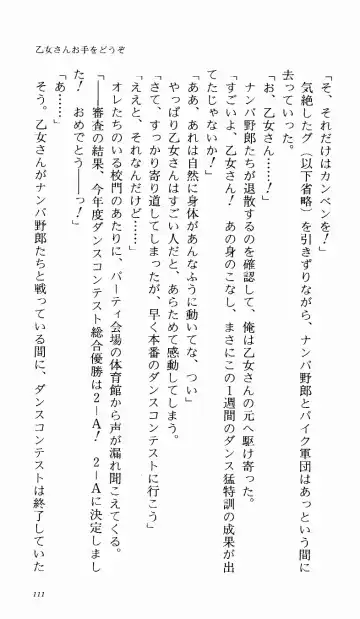 乙女さんお手をどうぞ
「そ、それだけはカンベンを！」
　気絶したグ（以下省略）を引きずりながら、ナンパ野郎とバイク軍団はあっという間に
去っていった。
「お、乙女さん……！」
　ナンパ野郎たちが退散するのを確認して、俺は乙女さんの元へ駆け寄った。
「すごいよ、乙女さん！　あの身のこなし、まさにこの１週間のダンス猛特訓の成果が出
てたじゃないか！」
「ああ、あれは自然に身体があんなふうに動いてな、つい」
　やっぱり乙女さんはすごい人だと、あらためて感動してしまう。
「さて、すっかり寄り道してしまったが、早く本番のダンスコンテストに行こう」
「ええと、それなんだけど……」
　オレたちのいる校門のあたりに、パーティ会場の体育館から声が漏れ聞こえてくる。
「――審査の結果、今年度ダンスコンテスト総合優勝は２－Ａ！　２－Ａに決定しまし
た！　おめでとう――っ！」
「あ……」
　そう。乙女さんがナンパ野郎たちと戦っている間に、ダンスコンテストは終了していた
111